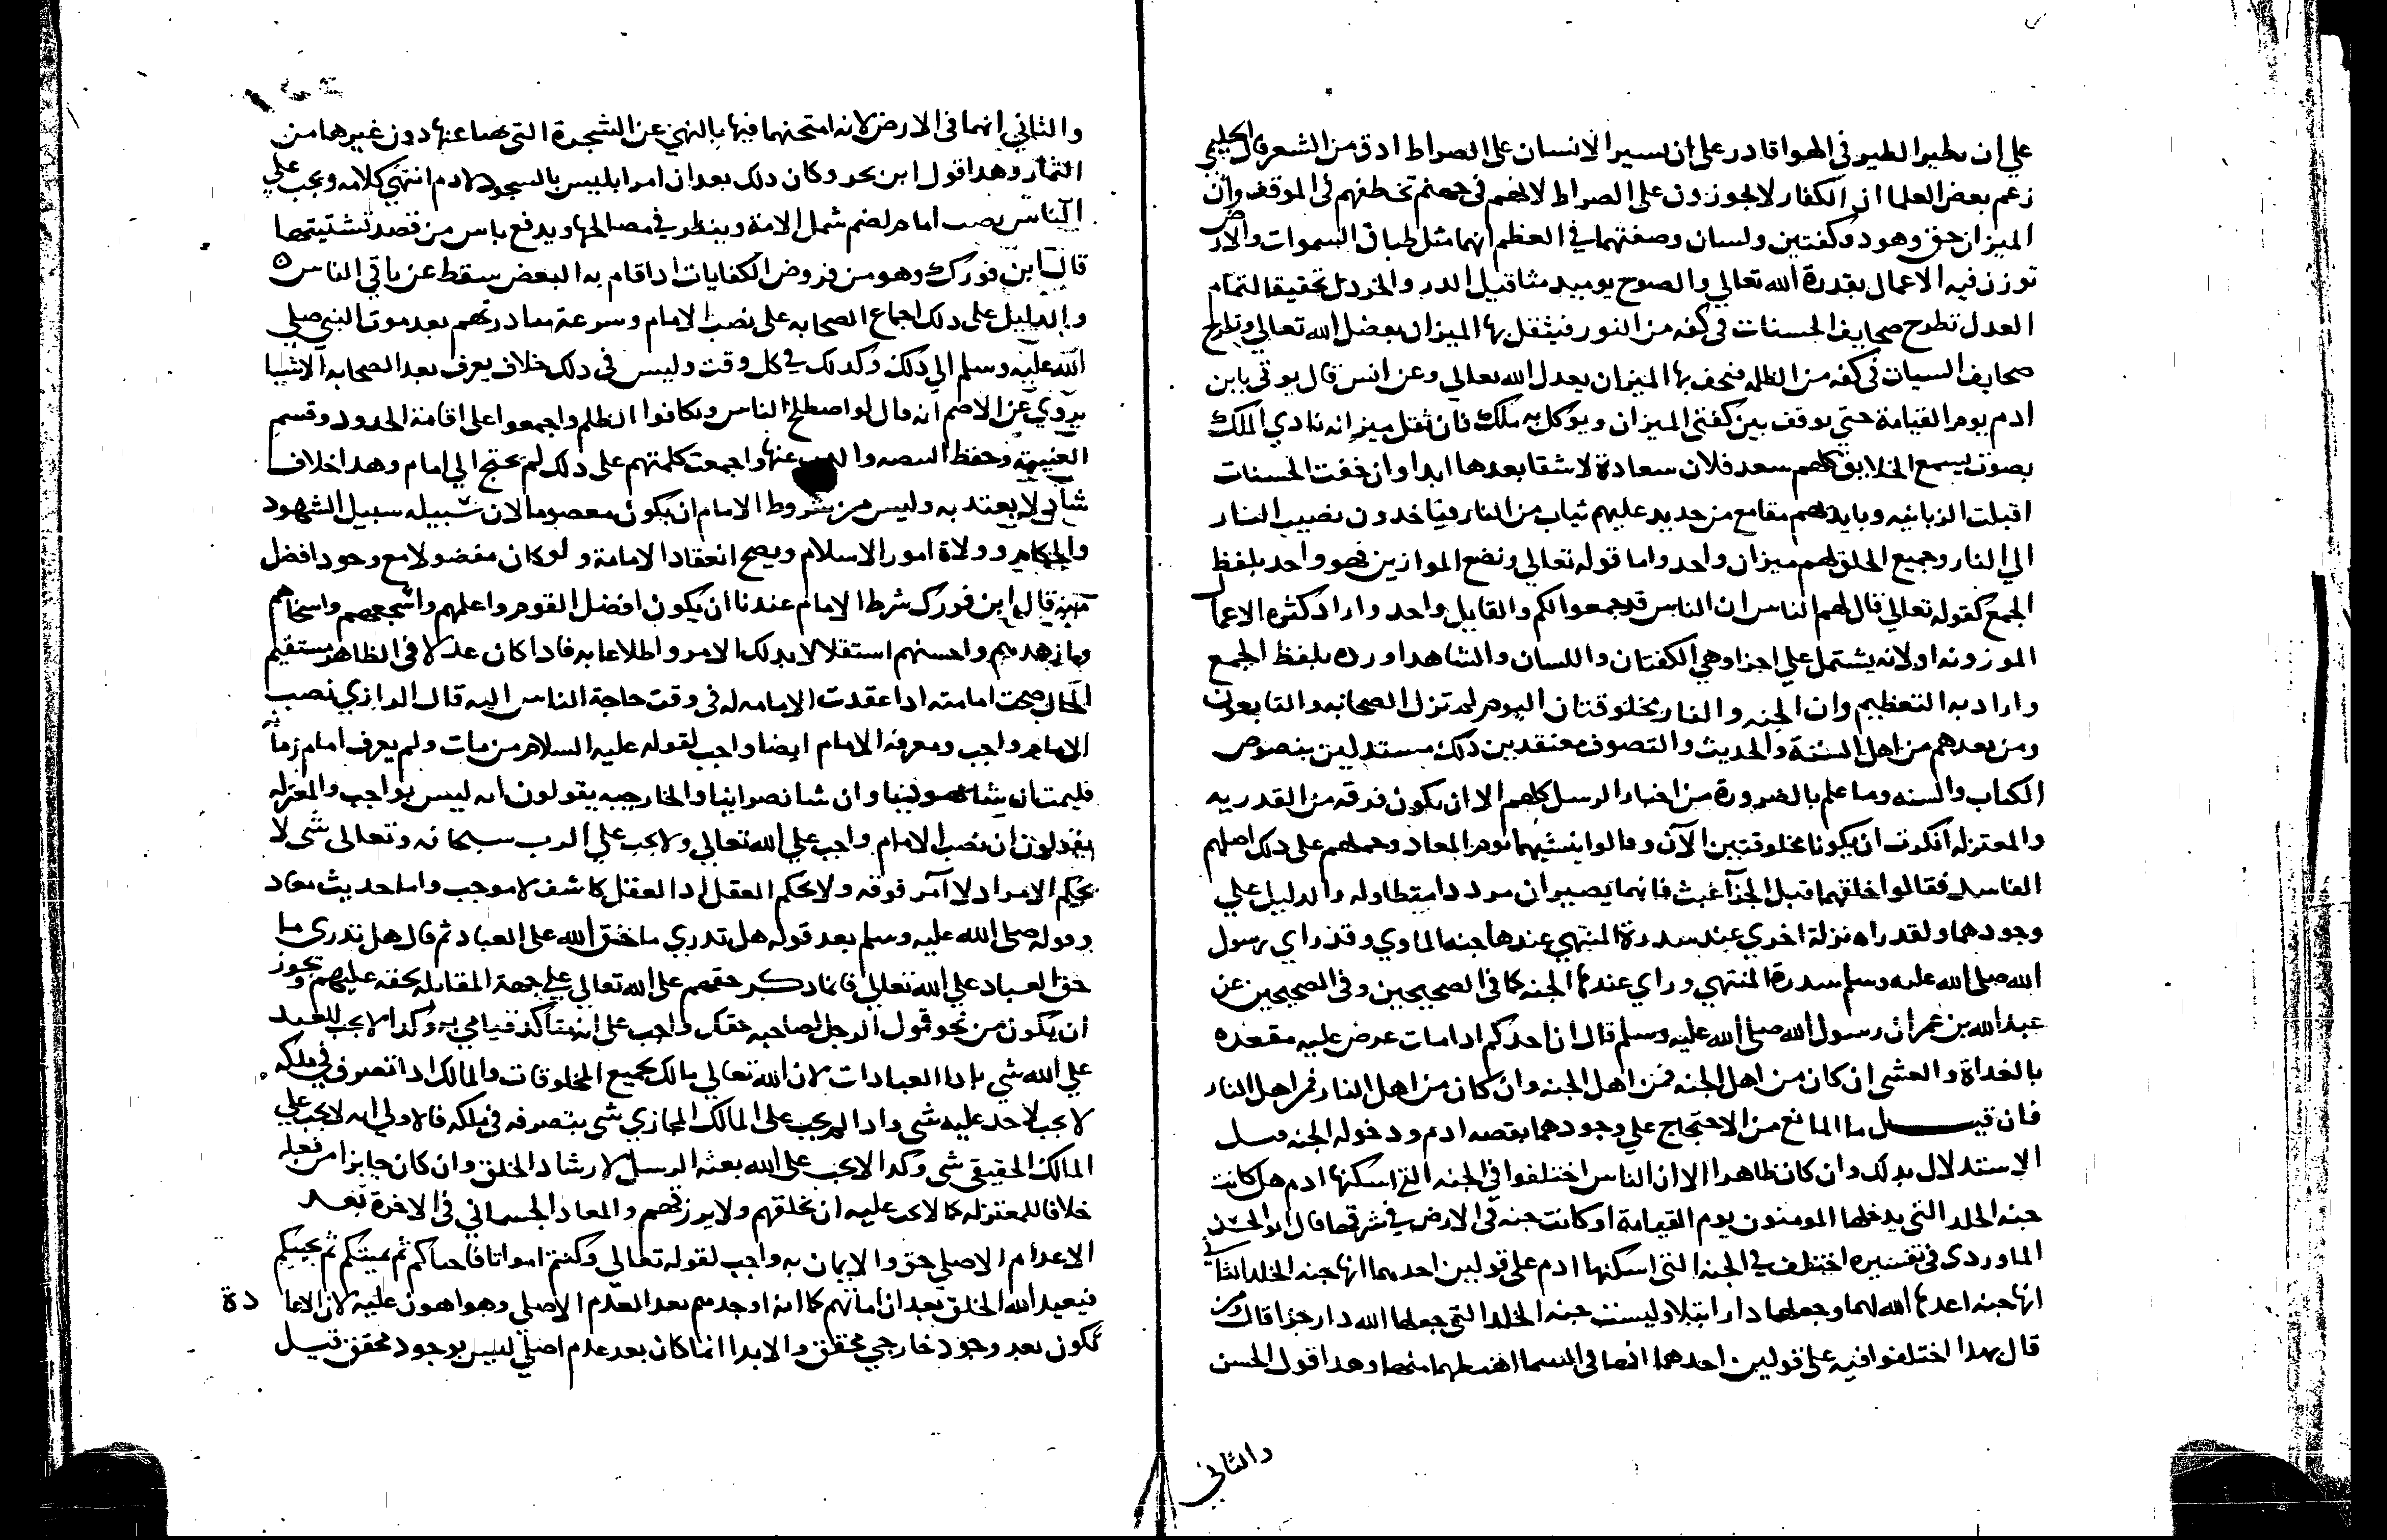 على ان يطير الطير في الهوا قادر على ان يسير الانسان على الصراط ادق من الشعر قال الحليمي
زعم بعض العلما ان الكفار لا يجوزون على الصراط لانهم في جهنم تخطفهم في الموقف وان
الميزان حق وهو ذو كفتين ولسان وصفتهما في العظم انهما مثل طباق السموات والارض
توزن فيه الاعمال بقدرة الله تعالي والصنوج يوميد مثاقيل الدر والخردل تحقيقا لتمام
العدل تطرح صحايف الحسنات في كفه من النور فيثقل بها الميزان بفضل الله تعالي وتطرح
صحايف السيات في كفه من الظلمه فيخف بها الميزان بعدل الله تعالي وعن انس قال يوتى بابن
ادم يوم القيامة حتى يوقف بين كفتي الميزان ويوكل به ملك فان ثقل ميزانه نادي الملك
بصوت يسمع الخلايق كلهم سعد فلان سعادة لا شقا بعدها ابدا وان خفت الحسنات
اقبلت الزبانيه وبايديهم مقامع من حديد عليهم ثياب من النار فياخدون نصيب النار
الي النار وجميع الخلق لهم ميزان واحد واما قوله تعالي ونضع الموازين فهو واحد بلفظ
الجمع كقوله تعالي قال لهم الناس ان الناس قد جمعوا لكم والقايل واحد واراد كثره الاعمال
الموزونه او لانه يشتمل على اجزا وهي الكفتان واللسان والشاهد او رده بلفظ الجمع
واراد به التعظيم وان الجنه والنار مخلوقتان اليوم لم تزل الصحابه والتابعون
ومن بعدهم من اهل السنة والحديث والتصوف معتقدين ذلك مستدلين بنصوص
الكتاب والسنه وما علم بالضرورة من اخبار الرسل كلهم الا ان يكون فرقه من القدريه
والمعتزله انكرت ان يكونا مخلوقتين الآن وقالوا ينشيهما يوم المعاد وحملهم على دلك اصلهم
الفاسد فقالوا خلقهما قبل الجزآ عبث فانهما يصيران مددا متطاوله والدليل علي
وجودهما ولقد راه نزلة اخري عند سدرة المنتهي عندها جنه الماوي وقد راي رسول
الله صلى الله عليه وسلم سدرة المنتهي وراي عندها الجنه كما في الصحيحين وفي الصحيحين عن
عبد الله بن عمر ان رسول الله صلى الله عليه وسلم قال ان احدكم ادا مات عرض عليه مقعده
بالغداة والعشي ان كان من اهل الجنه فمن اهل الجنه وان كان من اهل النار فمن اهل النار
فان قيل ما المانع من الاحتجاج علي وجودهما بقصه ادم ودخوله الجنه قيل
الاستدلال بدلك وان كان ظاهرا الا ان الناس اختلفوا في الجنه التي اسكنها ادم هل كانت
جنه الخلد التي يدخلها المومنون يوم القيامة او كانت جنه في الارض في شرقها قال ابو الحسن
الماوردي في تفسيره اختلف في الجنه التي اسكنها ادم على قولين احدهما انها جنه الخلد الثاني
انها جنه اعدها الله لهما وجعلها دار ابتلا وليست جنه الخلد التي جعلها الله دار جزا قال ومن
قال بهدا اختلفوا فيه على قولين احدهما انها في السما اهبطهما منها وهدا قول الحسن
والثاني
والثاني انهما في الارض لانه امتحنهما فيها بالنهي عن الشجرة التي نهيا عنها دون غيرهما من
الثمار وهدا قول ابن بحر وكان دلك بعد ان امر ابليس بالسجود لادم انتهي كلامه ويجب علي
الناس نصب امام لضم شمل الامة وينظر في مصالحها ويدفع باس من قصد تشتيتها
قال ابن فورك وهو من فروض الكفايات ادا قام به البعض سقط عن باقي الناس ه
والدليل على دلك اجماع الصحابه على نصب الامام وسرعة مبادرتهم بعد موت النبي صلي
الله عليه وسلم الي ذلك وكدلك في كل وقت وليس في دلك خلاف يعرف بعد الصحابه الا شيا
يروي عن الاصم انه قال لو اصطلح الناس وتكافوا الظلم واجمعوا على اقامة الحدود وقسم
الغنيمة وحفظ البيضه والدب عنها واجمعت كلمتهم على دلك لم يحتج الي امام وهدا خلاف
شاد لا يعتد به وليس من شروط الامام ان يكون معصوما لان سبيله سبيل الشهود
والحكام وولاة امور الاسلام ويصح انعقاد الامامة ولو كان مفضولا مع وجود افضل
منه قال ابن فورك شرط الامام عندنا ان يكون افضل القوم واعلمهم واشجعهم واسخاهم
وازهدهم واحسنهم استقلالا بدلك الامر واطلاعا به فادا كان عدلا في الظاهر مستقيم
الحال صحت امامته ادا عقدت الامامه له في وقت حاجة الناس اليه قال الرازي نصب
الامام واجب ومعرفه الامام ايضا واجب لقوله عليه السلام من مات ولم يعرف امام زمانه
فليمت ان شا يهوديا وان شا نصرانيا والخارجيه يقولون انه ليس بواجب والمعتزله
يقولون ان نصب الامام واجب علي الله تعالي ولا يجب علي الرب سبحانه وتعالى شي لا
بحكم الامر اد لا آمر فوقه ولا بحكم العقل اد العقل كاشف لا موجب واما حديث معاد
وقوله صلى الله عليه وسلم بعد قوله هل تدري ما حق الله على العباد ثم قال هل تدري ما
حق العباد علي الله تعالي فانما دكر حقهم على الله تعالي علي جهة المقابله لحقه عليهم ويجوز
ان يكون من نحو قول الرجل لصاحبه حقك واجب على اي متأكد قيامي به وكدا لا يجب للعبد
علي الله شي بادا العبادات لان الله تعالي مالك لجميع المخلوقات والمالك ادا تصرف في ملكه
لا يجب لاحد عليه شي وادا لم يجب على المالك المجازي شي بتصرفه في ملكه فالاولي انه لا يجب علي
المالك الحقيقي شي وكدا لا يجب على الله بعثه الرسل لارشاد الخلق وان كان جايزا من فعله
خلافا للمعتزله كما لا يجب عليه ان يخلقهم ولا يرزقهم والمعاد الجسماني في الاخرة بعد
الاعدام الاصلي حق والايمان به واجب لقوله تعالي وكنتم امواتا فاحياكم ثم يميتكم ثم يحييكم
فيعيد الله الخلق بعد ان اماتهم كما انه اوجدهم بعد العدم الاصلي وهو اهون عليه لان الاعادة
تكون بعد وجود خارجي محقق والابدا انما كان بعد عدم اصلي ليس بوجود محقق قيل